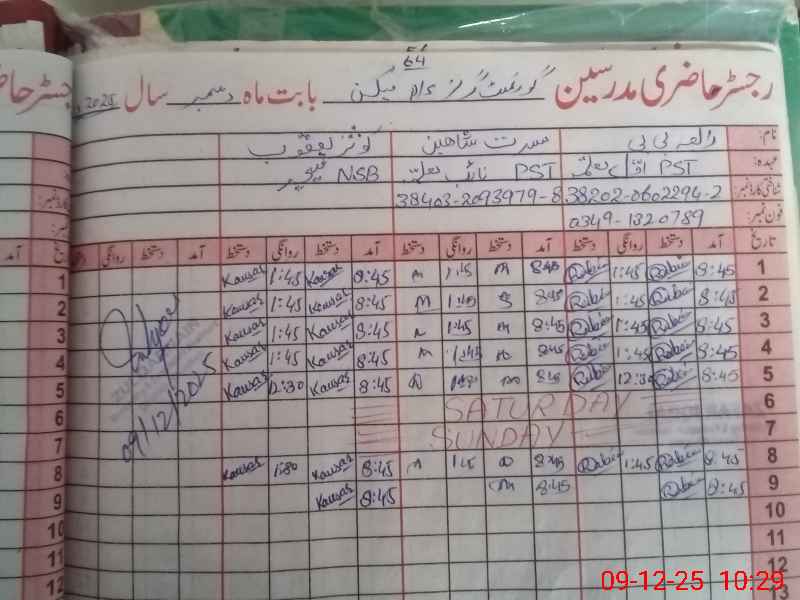 64
رجسٹر حاضری مدرسین گورنمنٹ گرلز بابت ماہ دسمبر سال 2025
نام: رابعہ بی بی مسرت شاہین کوثر یعقوب
عہدہ: PST PST نائب معلمہ NSB ٹیچر
شناختی کارڈ نمبر: 38202-0602294-2 38403-2093979-8
فون نمبر: 0349-1320789
تاریخ آمد دستخط روانگی دستخط آمد دستخط روانگی دستخط آمد دستخط روانگی دستخط آمد دستخط روانگی
1 8:45 Rabia 1:45 Rabia 8:45 m 1:45 m 8:45 Kausar 1:45 Kausar
2 8:45 Rabia 1:45 Rabia 8:45 1:45 m 8:45 Kausar 1:45 Kausar
3 8:45 Rabia 1:45 Rabia 8:45 m 1:45 8:45 Kausar 1:45 Kausar
4 8:45 Rabia 1:45 Rabia 8:45 1:45 m 8:45 Kausar 1:45 Kausar
5 8:45 Rabia 12:30 Rabia 8:45 m 8:45 Kausar 12:30 Kausar
6 SATURDAY
7 SUNDAY
8 8:45 Rabia 1:45 Rabia 8:45 1:45 8:45 Kausar 1:30 Kausar
9 8:45 Rabia 8:45 m 8:45 Kausar
10
11
12
13
09/12/2025
09-12-25 10:29